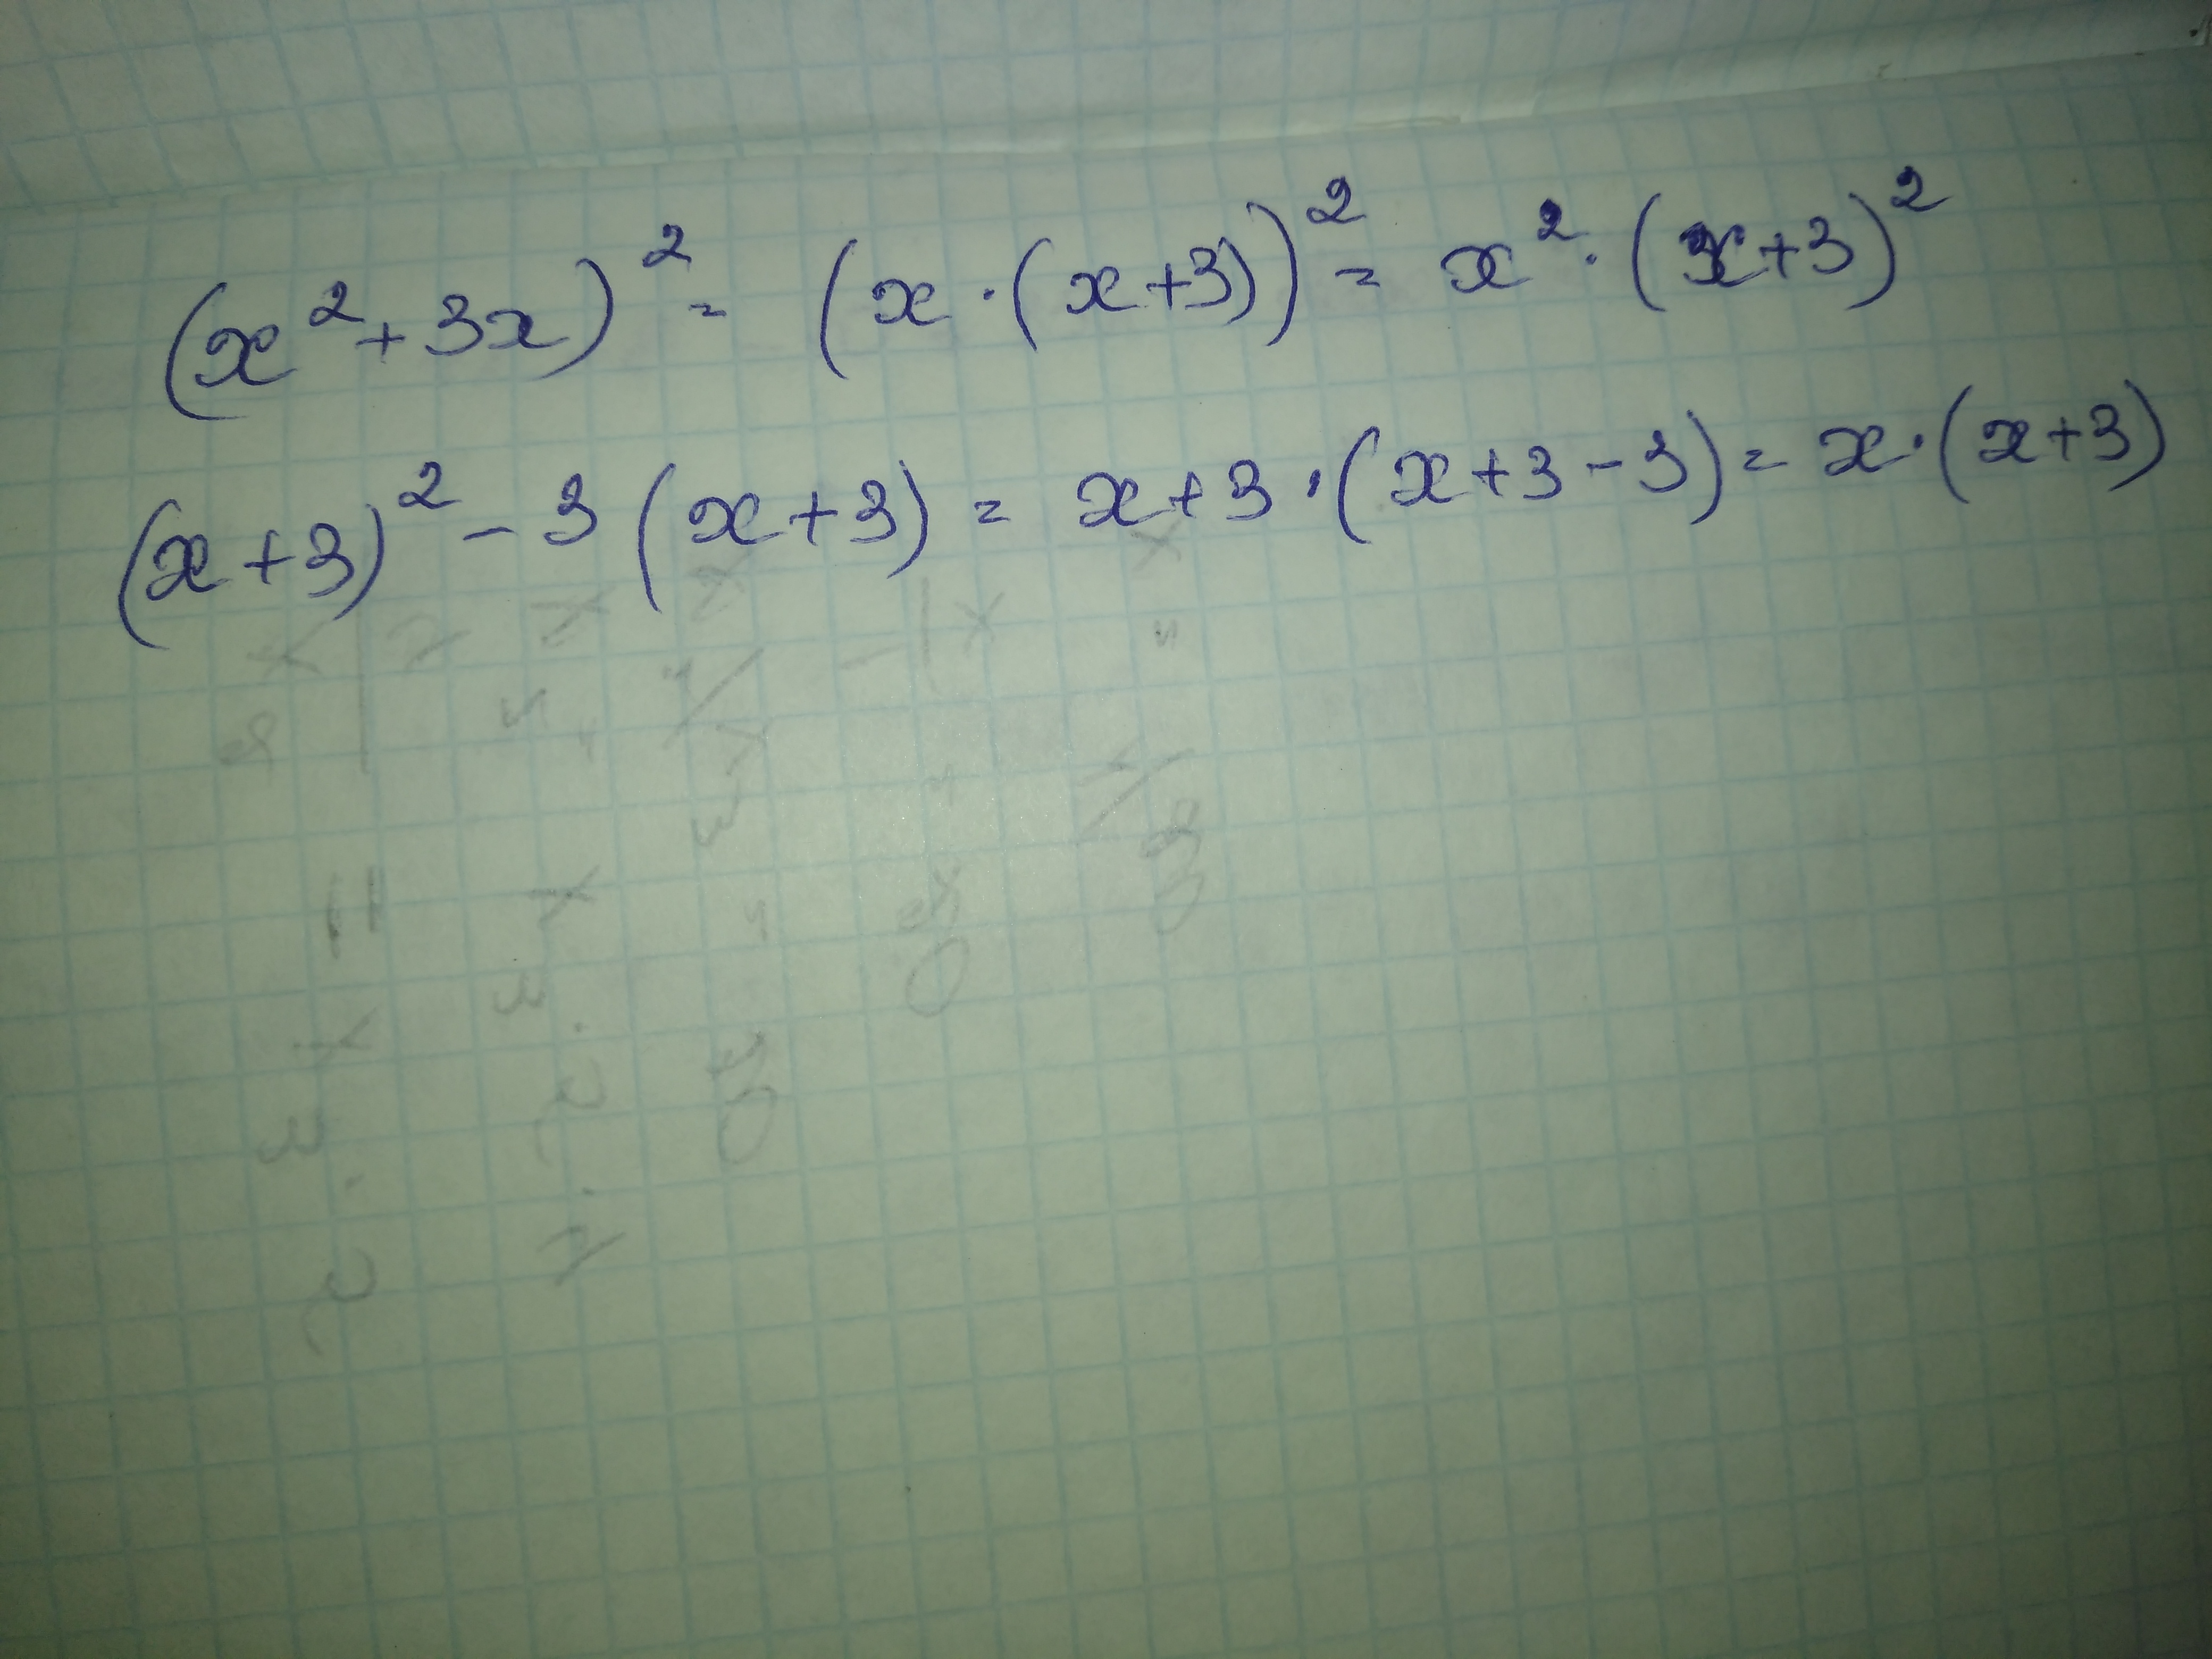 (x² + 3x)² = (x · (x+3))² = x² · (x+3)²
(x+3)² - 3(x+3) = x+3 · (x+3-3) = x · (x+3)